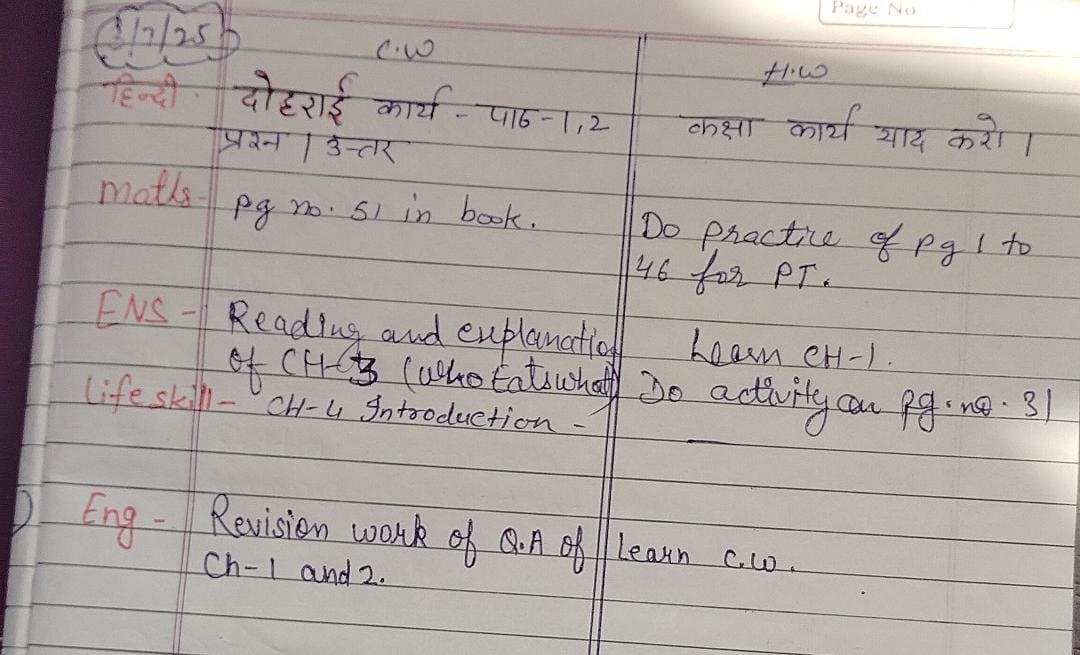 Page No
3/7/25
C.W
H.W
हिन्दी - दोहराई कार्य - पाठ-1,2
प्रश्न / उत्तर
कक्षा कार्य याद करो ।
Maths - pg no. 51 in book.
Do practice of pg 1 to
46 for PT.
ENS - Reading and explanation
of CH-3 (who Eats what)
Learn CH-1.
Life skill - CH-4 Introduction -
Do activity on pg. no. 31
Eng - Revision work of Q.A of
Ch-1 and 2.
Learn C.W.